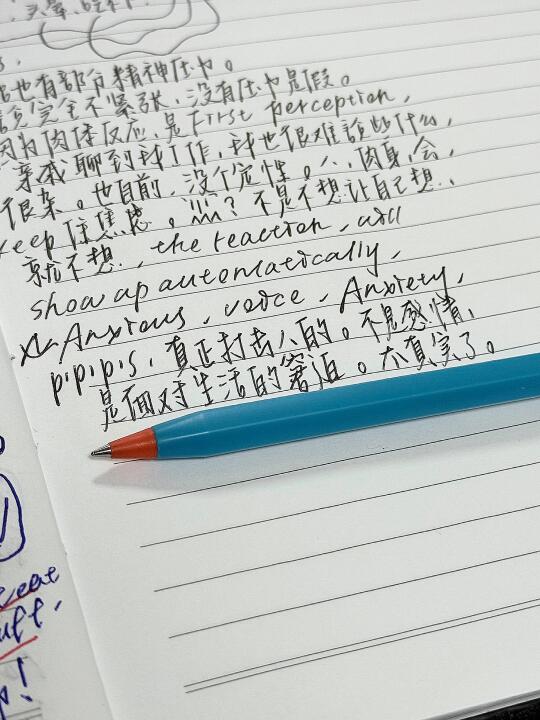 也有部分精神压力。
完全不紧张,没有压力是假。
因为肉体反应,是First perception,
亲戚聊到我工作,我也很难說些什么,
很杂。也目前,没个定性。八,肉身,会,
keep 住焦感。灬?不是不想让自己想..
就不想.., the reaction, will
show up automatically,
Anxious, voice, Anxiety,
p.i.p.i.p.s, 真正打击人的。不是感情,
是面对生活的窘迫。太真实了。
uff,
!